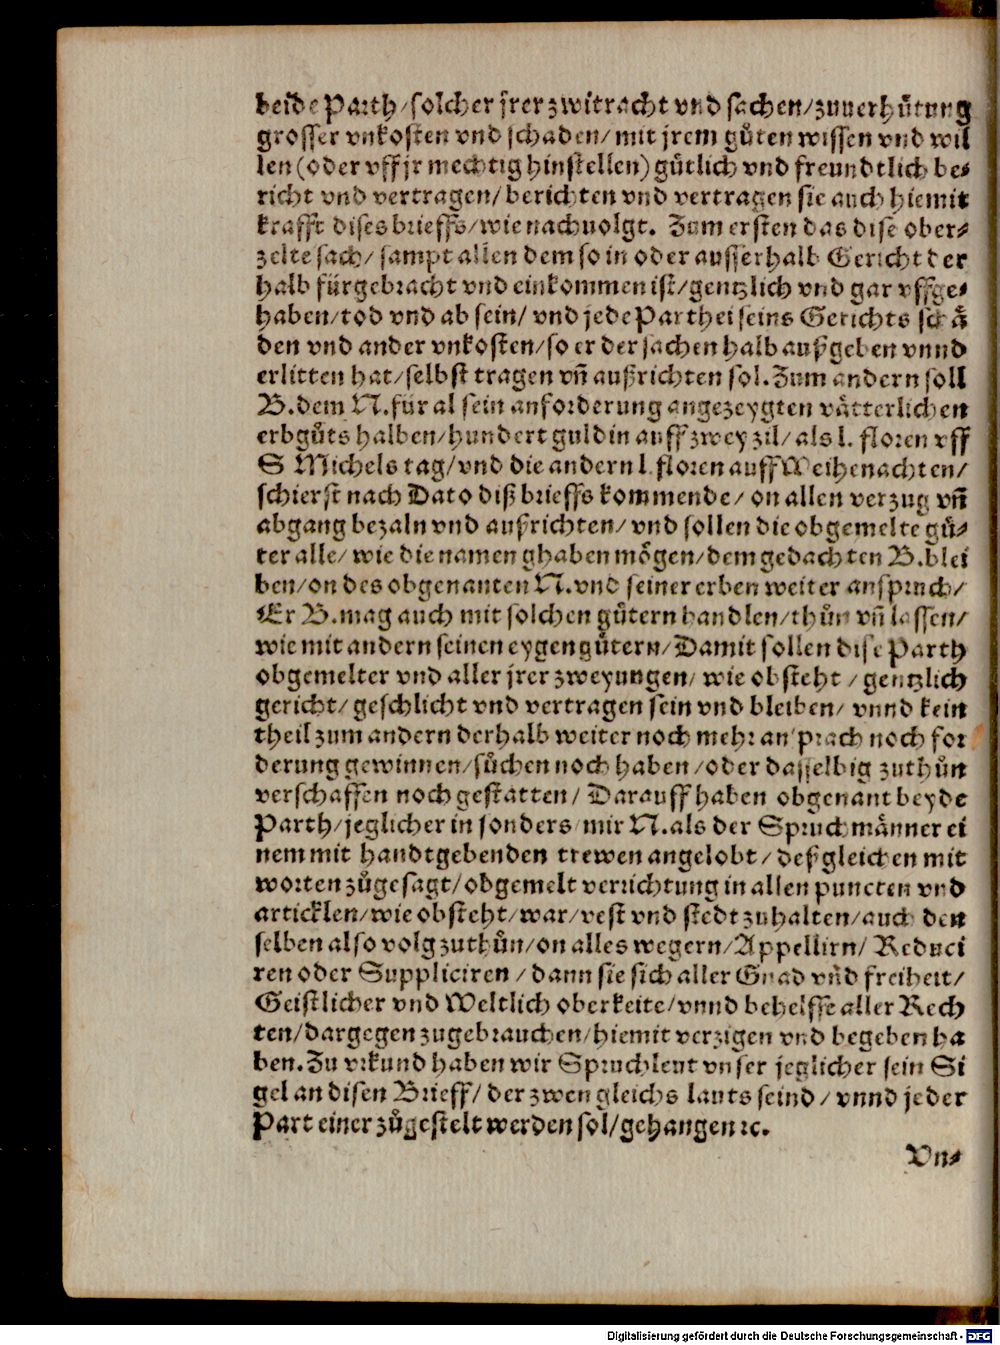 beide Parth/solcher jrer zwitracht vnd sachen/zuuerhuͤtung
grosser vnkosten vnd schaden/mit jrem guͤten wissen vnd wil
len (oder vff jr mechtig hinstellen) guͤtlich vnd freundtlich be⸗
richt vnd vertragen/berichten vnd vertragen sie auch hiemit
krafft dises brieffs/wie nachuolgt. Zum ersten das dise ober⸗
zelte sach/sampt allen dem so in oder ausserhalb Gericht der
halb fürgebracht vnd einkommen ist/gentzlich vnd gar vffge⸗
haben/tod vnd ab sein/vnd jede Parthei seins Gerichts schaͤ
den vnd ander vnkosten/so er der sachen halb außgeben vnnd
erlitten hat/selbst tragen vñ außrichten sol. Zum andern soll
B. dem N. für al sein anforderung angezeygten vaͤtterlichen
erbguͦts halben/hundert guldin auff zwey zil/als l. floren vff
S Michels tag/vnd die andern l. floren auff Weihenachten/
schierst nach Dato diß brieffs kommende/on allen verzug vñ
abgang bezaln vnd außrichten/vnd sollen die obgemelte guͤ⸗
ter alle/wie die namen ghaben moͤgen/dem gedachten B. blei
ben/on des obgenanten N. vnd seiner erben weiter anspruch/
Er B. mag auch mit solchen guͤtern handlen/thuͦn vñ lassen/
wie mit andern seinen eygen guͤtern/Damit sollen dise Parth
obgemelter vnd aller jrer zweyungen/wie obsteht/gentzlich
gericht/geschlicht vnd vertragen sein vnd bleiben/vnnd kein
theil zum andern derhalb weiter noch mehr ansprach noch for
derung gewinnen/suͦchen noch haben/oder dasselbig zuthuͦn
verschaffen noch gestatten/Darauff haben obgenant beyde
Parth/jeglicher in sonders/mir N. als der Spruchmaͤnner ei
nem mit handtgebenden trewen angelobt/deßgleichen mit
worten zuͦgesagt/obgemelt verrichtung in allen puncten vnd
articklen/wie obsteht/war/vest vnd stedt zuhalten/auch den
selben also volg zuthuͦn/on alles wegern/Appellirn/Reduci
ren oder Suppliciren/dann sie sich aller Gnad vnd freiheit/
Geistlicher vnd Weltlich oberkeite/vnnd behelffe aller Rech
ten/dargegen zugebrauchen/hiemit verzigen vnd begeben ha
ben. Zu vrkund haben wir Spruchleut vnser jeglicher sein Si
gel an disen Brieff/der zwen gleichs lauts seind/vnnd jeder
Part einer zuͦgestelt werden sol/gehangen ꝛc.
Vn⸗
Digitalisierung gefördert durch die Deutsche Forschungsgemeinschaft - DFG